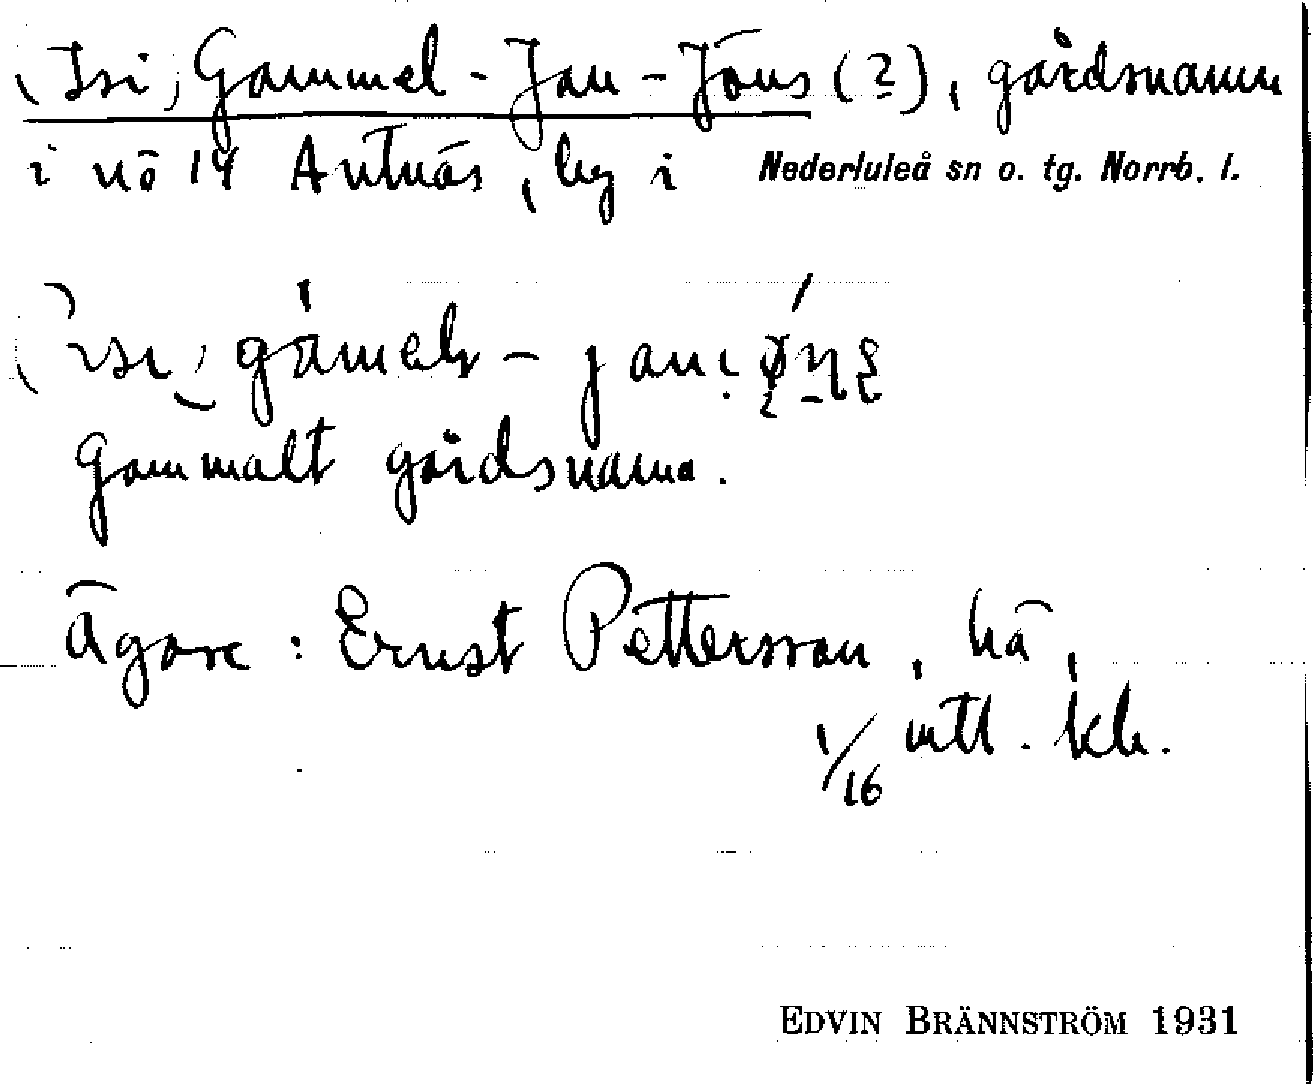 (Isi) Gammel-Jan-Jöns (?), gårdsnamn
i nö 14 Antnäs, by i Nederluleå sn o. tg. Norrb. l.
Gammalt gårdsnamn.
Ägare: Ernst Pettersson, hä,
1/16 mtl. kr.
EDVIN BRÄNNSTRÖM 1931